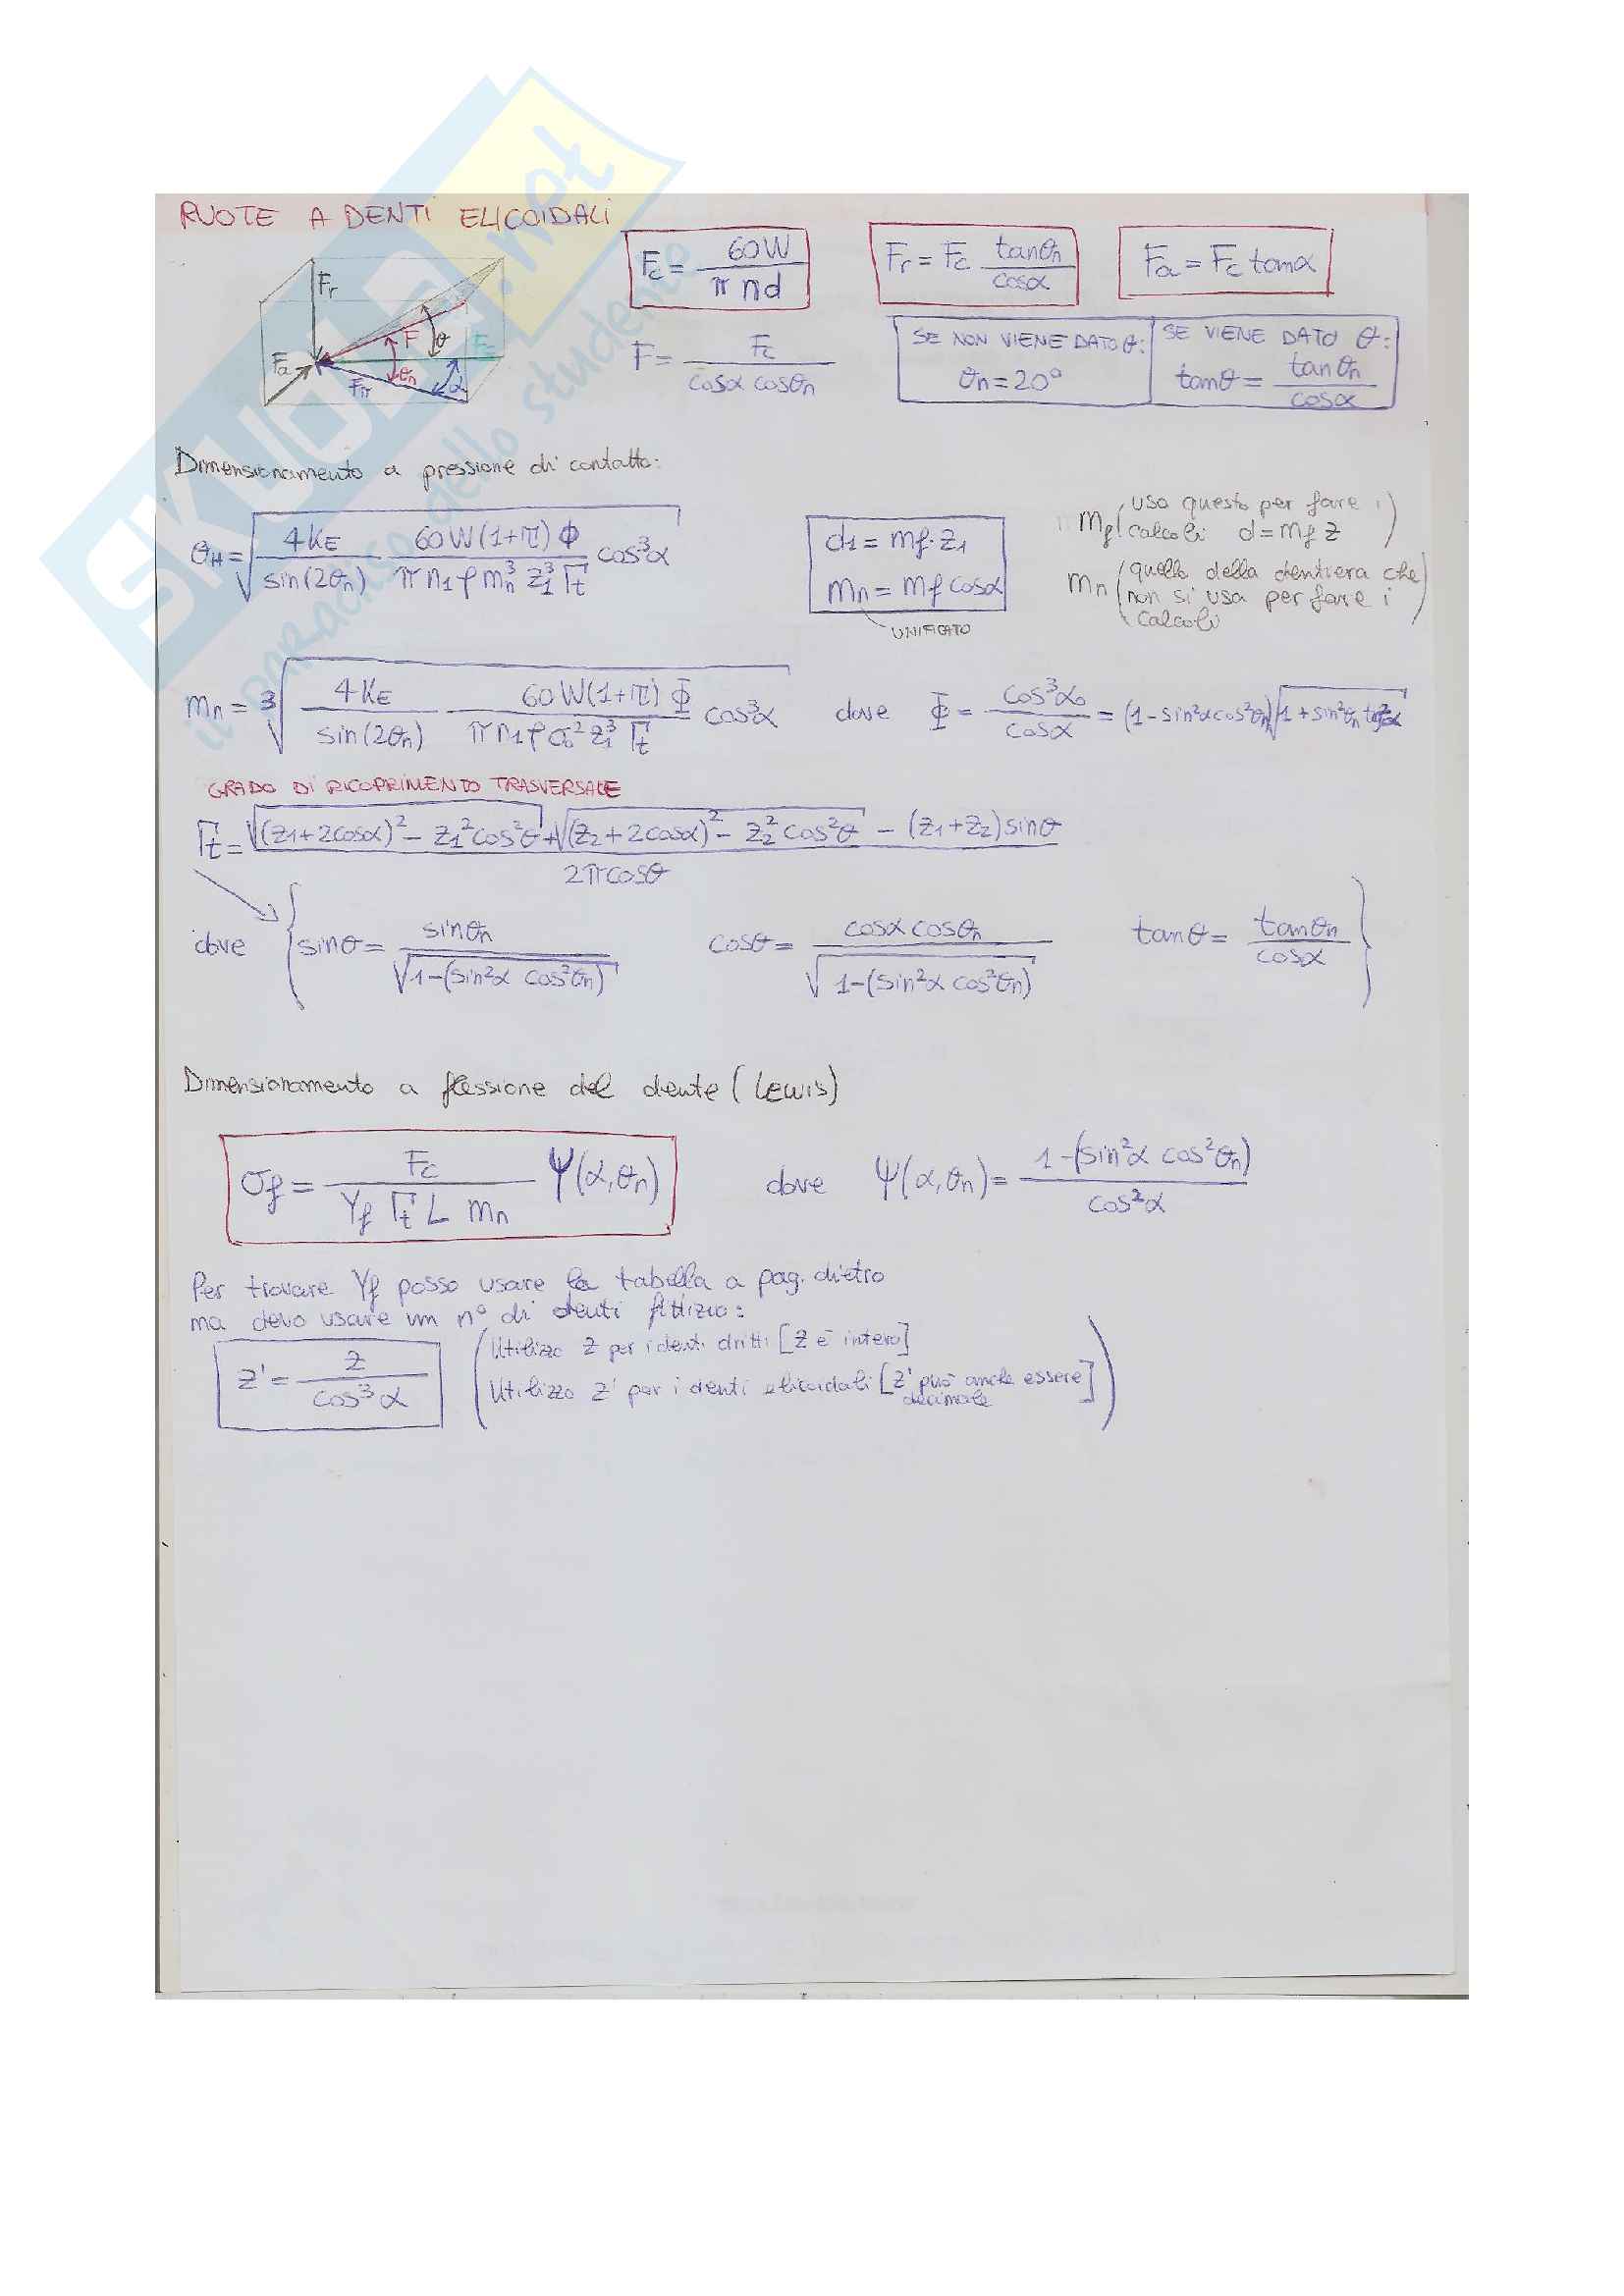 RUOTE A DENTI ELICOIDALI
Fc = 60W / π n d
Fr = Fc tanθn / cosα
Fa = Fc tanα
Fr
F
θ
Fc
Fa
θn
Fn
α
F = Fc / cosα cosθn
SE NON VIENE DATO θ:
θn = 20°
SE VIENE DATO θ:
tanθ = tanθn / cosα
Dimensionamento a pressione di contatto:
σH = √ 4KE / sin(2θn) 60W(1+π)Φ / π n1 φ mn³ z1³ Γt cos³α
d1 = mf · z1
mn = mf cosα
UNIFICATO
mf (uso questo per fare i calcoli d = mf z)
mn (quello della dentiera che non si usa per fare i calcoli)
mn = ³√ 4KE / sin(2θn) 60W(1+π)Φ / π n1 φ σo² z1³ Γt cos³α dove Φ = cos³α₀ / cosα = (1-sin²α cos²θn) √1+sin²θn tg²α
GRADO DI RICOPRIMENTO TRASVERSALE
Γt = √(z1+2cosα)² - z1²cos²θ + √(z2+2cosα)² - z2²cos²θ - (z1+z2)sinθ / 2πcosθ
dove { sinθ = sinθn / √1-(sin²α cos²θn) cosθ = cosα cosθn / √1-(sin²α cos²θn) tanθ = tanθn / cosα }
Dimensionamento a flessione del dente (LEWIS)
σf = Fc / Yf Γt L mn ψ(α,θn) dove ψ(α,θn) = 1-(sin²α cos²θn) / cos²α
Per trovare Yf posso usare la tabella a pag. dietro
ma devo usare un n° di denti fittizio:
z' = z / cos³α
(Utilizzo z per i denti dritti [z è intero]
Utilizzo z' per i denti elicoidali [z' può anche essere decimale])
SKUOLA.net
il paradiso dello studente